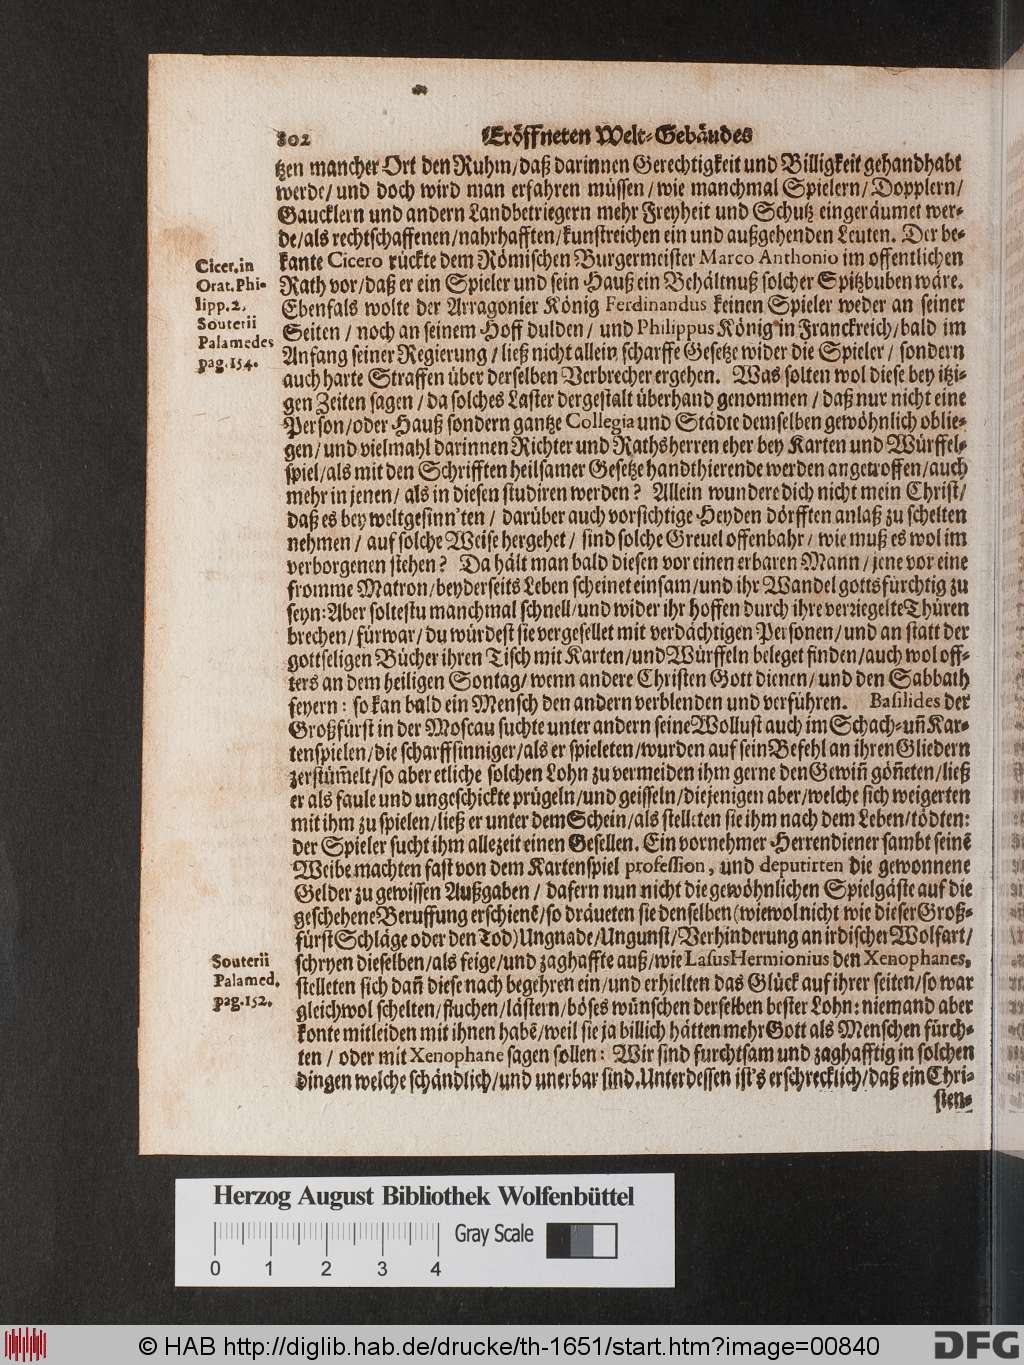 802 Eröffneten Welt-Gebäudes
tzen mancher Ort den Ruhm/daß darinnen Gerechtigkeit und Billigkeit gehandhabt
werde/und doch wird man erfahren müssen/wie manchmal Spielern/Dopplern/
Gaucklern und andern Landbetriegern mehr Freyheit und Schutz eingeräumet wer-
de/als rechtschaffenen/nahrhafften/kunstreichen ein und außgehenden Leuten. Der be-
kante Cicero rückte dem Römischen Burgermeister Marco Anthonio im offentlichen
Rath vor/daß er ein Spieler und sein Hauß ein Behältnuß solcher Spitzbuben wäre.
Ebenfals wolte der Arragonier König Ferdinandus keinen Spieler weder an seiner
Seiten/noch an seinem Hoff dulden/und Philippus König in Franckreich/bald im
Anfang seiner Regierung/ließ nicht allein scharffe Gesetze wider die Spieler/sondern
auch harte Straffen über derselben Verbrecher ergehen. Was solten wol diese bey itzi-
gen Zeiten sagen/da solches Laster dergestalt überhand genommen/daß nur nicht eine
Person/oder Hauß sondern gantze Collegia und Städte demselben gewöhnlich oblie-
gen/und vielmahl darinnen Richter und Rathsherren eher bey Karten und Würffel-
spiel/als mit den Schrifften heilsamer Gesetze handthierende werden angetroffen/auch
mehr in jenen/als in diesen studiren werden? Allein wundere dich nicht mein Christ/
daß es bey weltgesinn'ten/darüber auch vorsichtige Heyden dörfften anlaß zu schelten
nehmen/auf solche Weise hergehet/sind solche Greuel offenbahr/wie muß es wol im
verborgenen stehen? Da hält man bald diesen vor einen erbaren Mann/jene vor eine
fromme Matron/beyderseits Leben scheinet einsam/und ihr Wandel gottsfürchtig zu
seyn: Aber soltestu manchmal schnell/und wider ihr hoffen durch ihre verriegelte Thüren
brechen/fürwar/du würdest sie vergesellet mit verdächtigen Personen/und an statt der
gottseligen Bücher ihren Tisch mit Karten/und Würffeln beleget finden/auch wol off-
ters an dem heiligen Sontag/wenn andere Christen Gott dienen/und den Sabbath
feyern: so kan bald ein Mensch den andern verblenden und verführen. Basilides der
Großfürst in der Moscau suchte unter andern seine Wollust auch im Schach-uñ Kar-
tenspielen/die scharffsinniger/als er spieleten/wurden auf sein Befehl an ihren Gliedern
zerstüm̃elt/so aber etliche solchen Lohn zu vermeiden ihm gerne den Gewiñ göñeten/ließ
er als faule und ungeschickte prügeln/und geisseln/diejenigen aber/welche sich weigerten
mit ihm zu spielen/ließ er unter dem Schein/als stelleten sie ihm nach dem Leben/tödten:
der Spieler sucht ihm allezeit einen Gesellen. Ein vornehmer Herrendiener sambt seinẽ
Weibe machten fast von dem Kartenspiel profession, und deputirten die gewonnene
Gelder zu gewissen Außgaben/dafern nun nicht die gewöhnlichen Spielgäste auf die
geschehene Beruffung erschienẽ/so dräueten sie denselben (wiewol nicht wie dieser Groß-
fürst Schläge oder den Tod) Ungnade/Ungunst/Verhinderung an irdischer Wolfart/
schryen dieselben/als feige/und zaghaffte auß/wie Lasus Hermionius den Xenophanes,
stelleten sich dañ diese nach begehren ein/und erhielten das Glück auf ihrer seiten/so war
gleichwol schelten/fluchen/lästern/böses wünschen derselben bester Lohn: niemand aber
konte mitleiden mit ihnen habẽ/weil sie ja billich hätten mehr Gott als Menschen fürch-
ten/oder mit Xenophane sagen sollen: Wir sind furchtsam und zaghafftig in solchen
dingen welche schändlich/und unerbar sind. Unterdessen ist's erschrecklich/daß ein Chri-
sten-
Cicer. in
Orat. Phi-
lipp. 2,
Souterii
Palamedes
pag. 154.
Souterii
Palamed.
pag. 152.
Herzog August Bibliothek Wolfenbüttel
Gray Scale
0 1 2 3 4
© HAB http://diglib.hab.de/drucke/th-1651/start.htm?image=00840
DFG